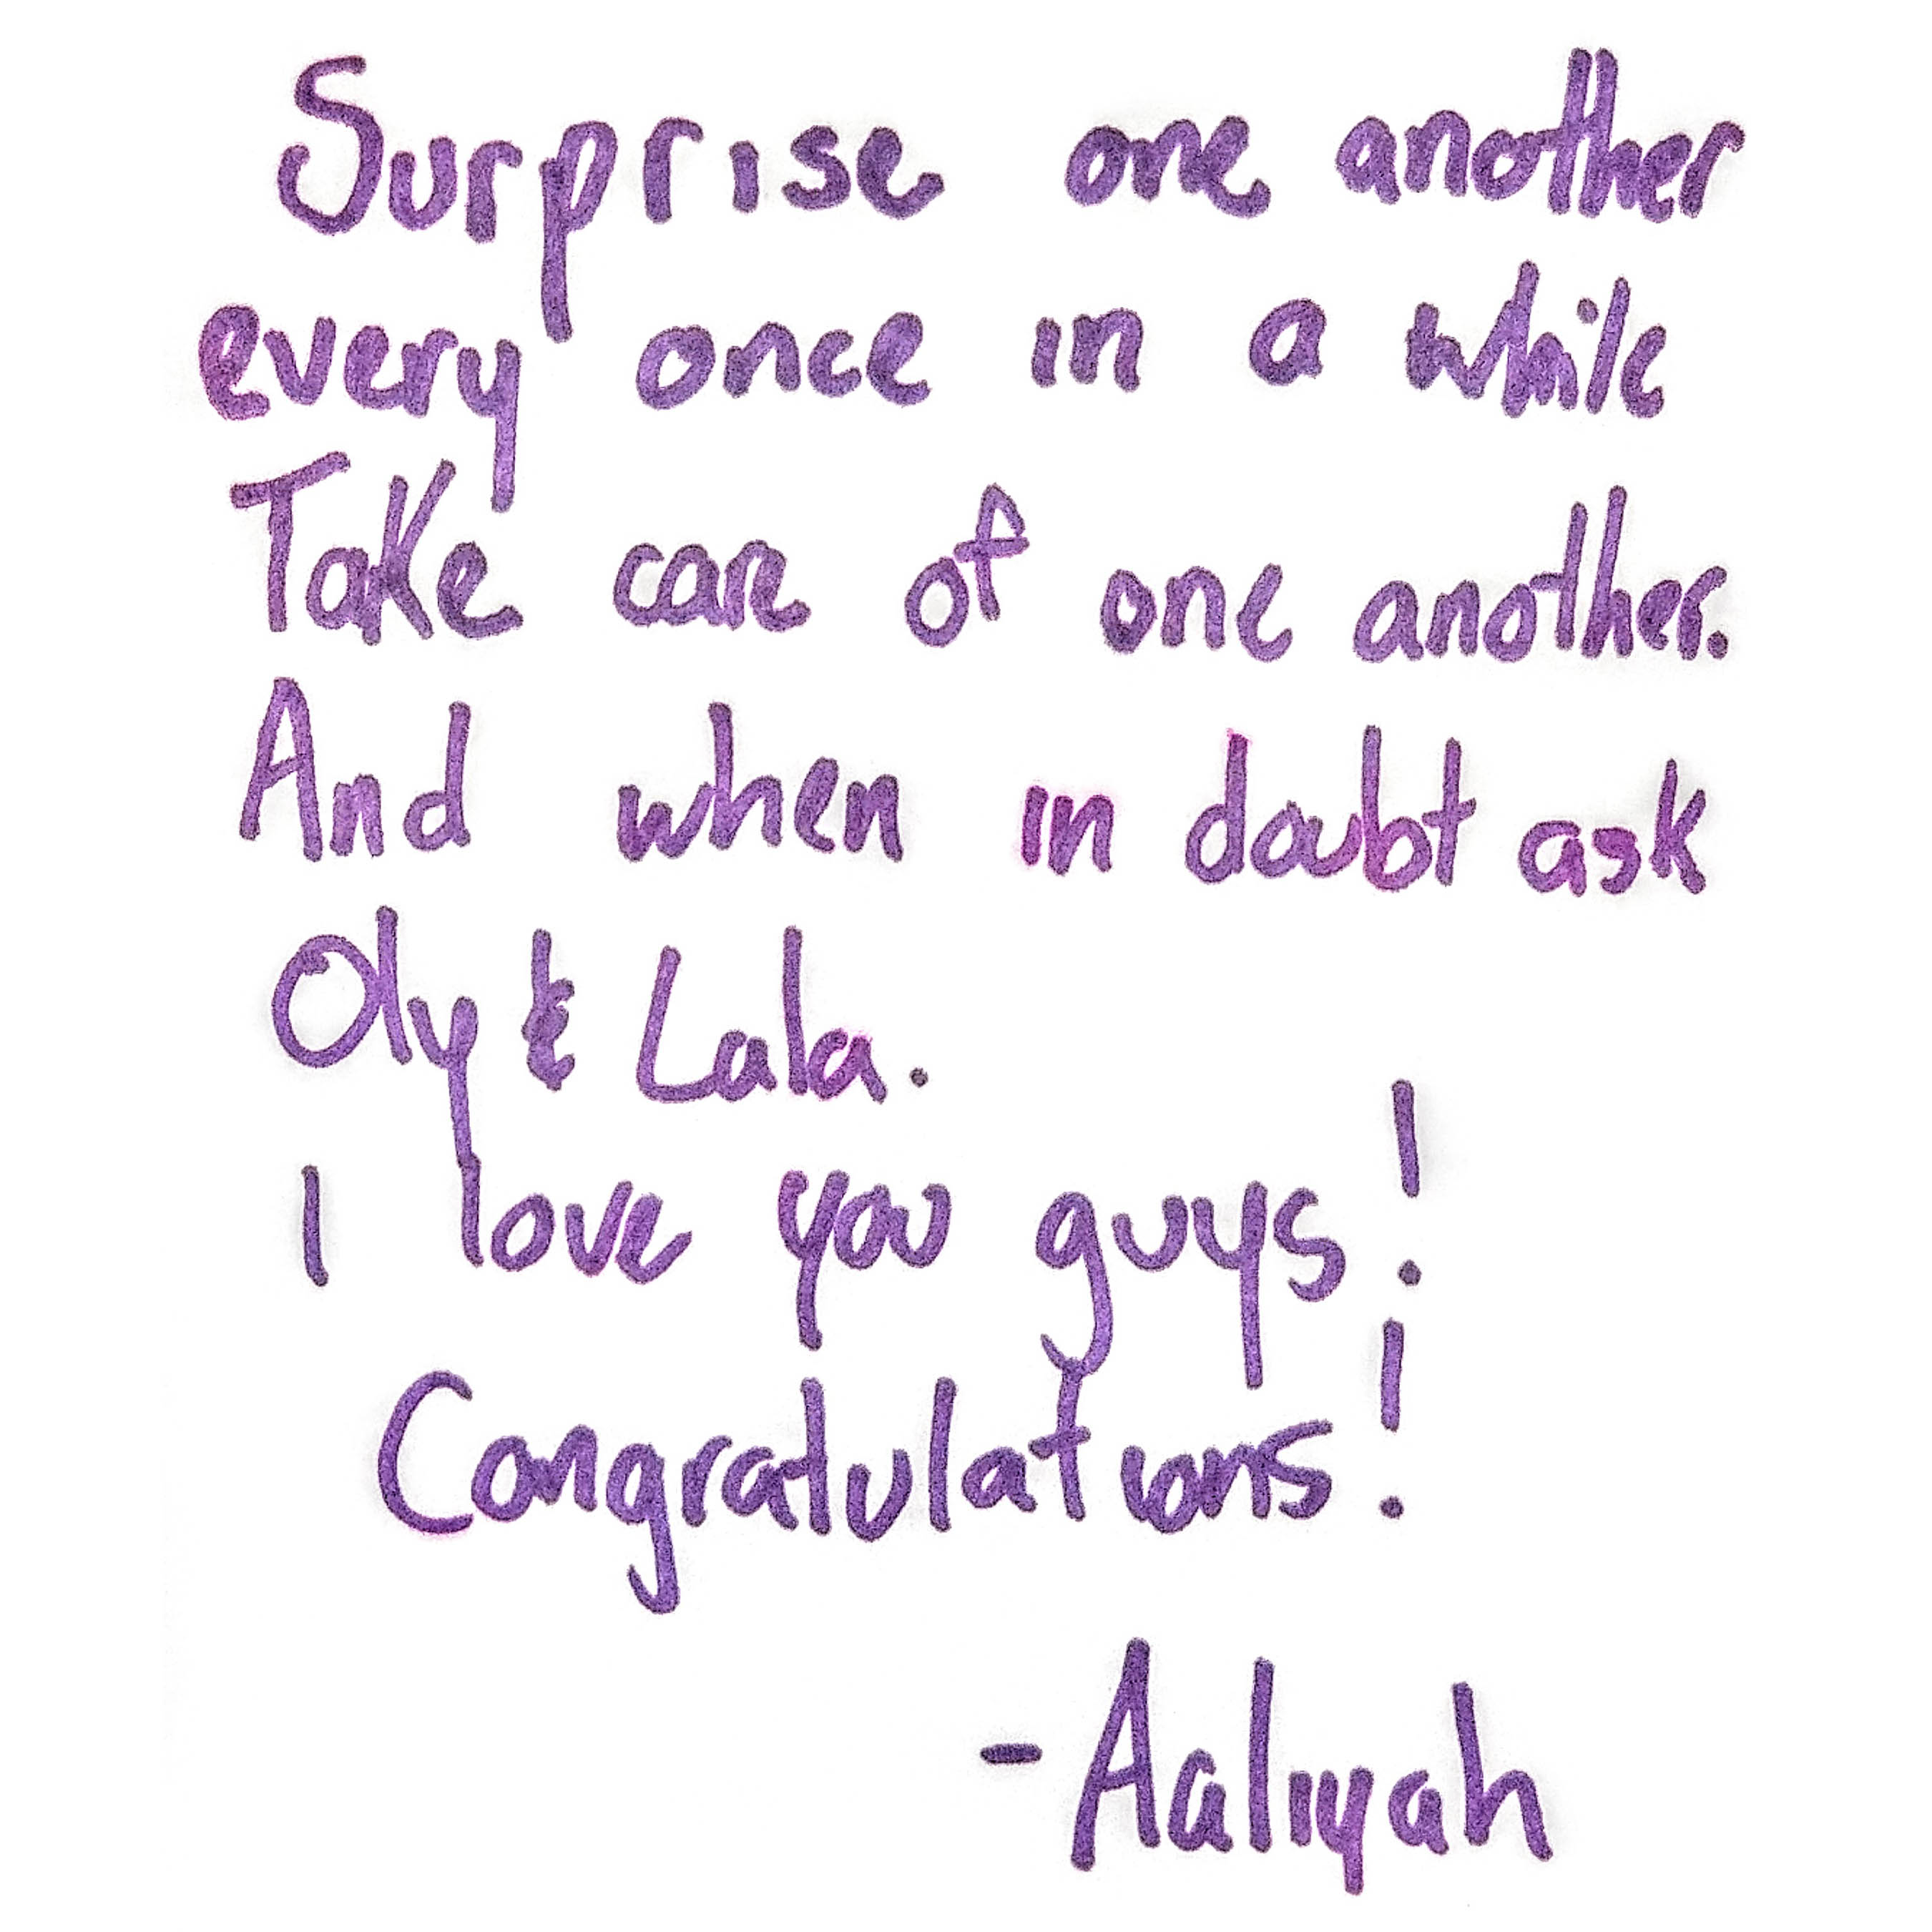 Surprise one another
every once in a while
Take care of one another.
And when in doubt ask
Oly & Lala.
I love you guys!
Congratulations!
-Aaliyah